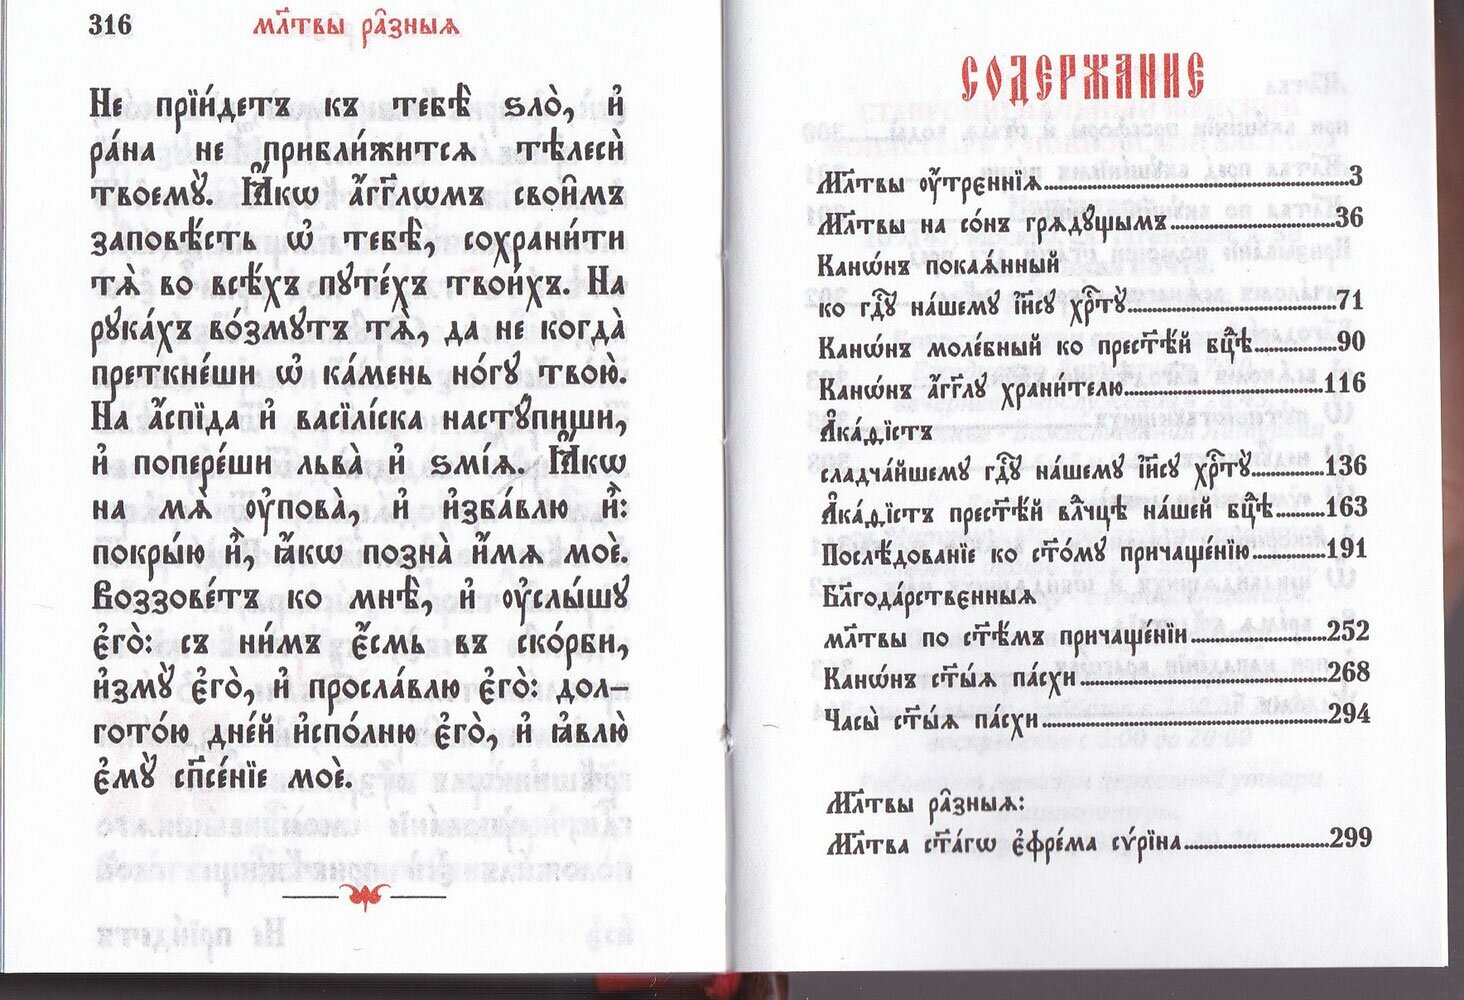 316
мл҃твы ра̑зныѧ
Не прїи́детъ къ тебѣ̀ ѕло̀, и҆
ра́на не прибли́житсѧ тѣлесѝ
твоемꙋ̀. Ꙗ҆́кѡ а҆́гг҃лѡмъ свои̑мъ
заповѣ́сть ѡ҆ тебѣ̀, сохрани́ти
тѧ̀ во всѣ́хъ пꙋте́хъ твои́хъ. На
рꙋка́хъ во́змꙋтъ тѧ̀, да не когда̀
преткне́ши ѡ҆ ка́мень но́гꙋ твою̀.
На а҆́спїда и҆ васїлі́ска настꙋ́пиши,
и҆ попере́ши льва̀ и҆ ѕмі́ѧ. Ꙗ҆́кѡ
на мѧ̀ ᲂу҆пова̀, и҆ и҆зба́влю и҆̀:
покры́ю и҆̀, ꙗ҆́кѡ позна̀ и҆́мѧ моѐ.
Воззове́тъ ко мнѣ̀, и҆ ᲂу҆слы́шꙋ
є҆го̀: съ ни́мъ є҆́смь въ ско́рби,
и҆змꙋ̀ є҆го̀, и҆ просла́влю є҆го̀: дол-
гото́ю дне́й и҆спо́лню є҆го̀, и҆ ꙗ҆влю̀
є҆мꙋ̀ сп҃се́нїе моѐ.
СОДЕРЖАНИЕ
Мл҃твы ᲂу҆́трєннїѧ...3
Мл҃твы на со́нъ грѧдꙋ́щымъ...36
Канѡ́нъ покаѧ́нный
ко гдⷭ҇ꙋ на́шемꙋ і҆и҃сꙋ хрⷭ҇тꙋ̀...71
Канѡ́нъ моле́бный ко прест҃ѣ́й бцⷣѣ...90
Канѡ́нъ а҆́гг҃лꙋ храни́телю...116
А҆ка́ѳїстъ
сладча́йшемꙋ гдⷭ҇ꙋ на́шемꙋ і҆и҃сꙋ хрⷭ҇тꙋ̀...136
А҆ка́ѳїстъ прест҃ѣ́й влⷣчцѣ на́шей бцⷣѣ...163
Послѣ́дованїе ко ст҃о́мꙋ причаще́нїю...191
Бл҃года́рствєнныѧ
мл҃твы по ст҃ѣ́мъ причаще́нїи...252
Канѡ́нъ ст҃ы́ѧ па́схи...268
Часы̀ ст҃ы́ѧ па́схи...294
Мл҃твы ра̑зныѧ:
Мл҃тва ст҃а́гѡ є҆фре́ма сѵ́рїна...299